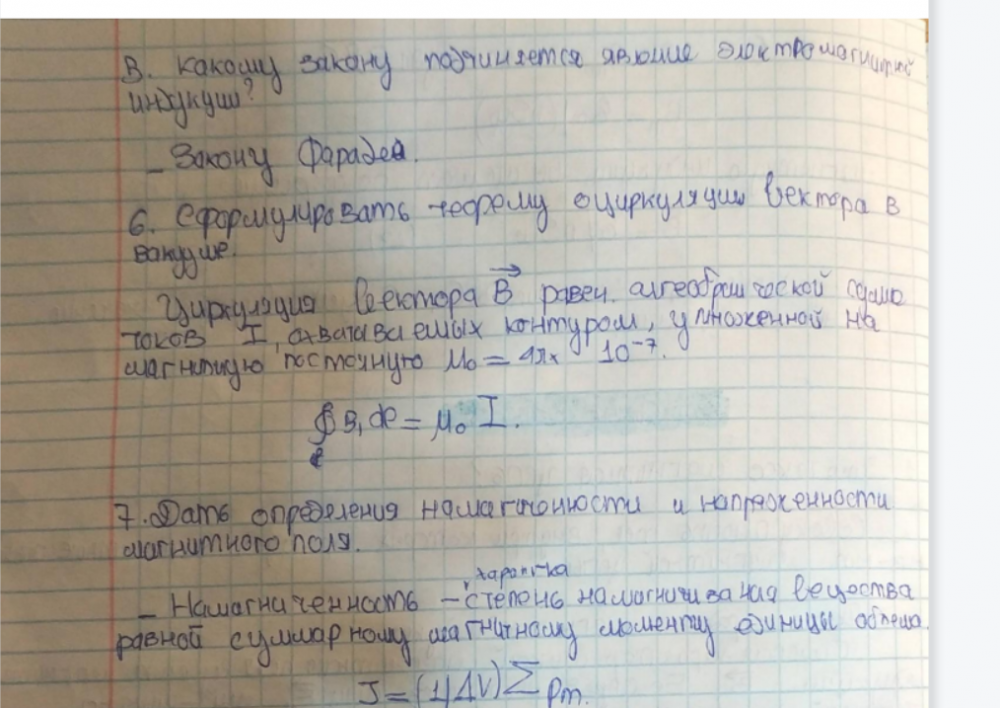 В. Какому закону подчиняется явление электромагнитной
индукции?
– Закону Фарадея.
6. Сформулировать теорему о циркуляции вектора в
вакууме.
Циркуляция вектора B равен алгебраической сумме
токов I, охватываемых контуром, умноженной на
магнитную постоянную μ₀ = 4π× 10⁻⁷.
∮ B, dl = μ₀ I.
ℓ
7. Дать определения намагниченности и напряженности
магнитного поля.
характ-ка
– Намагниченность – степень намагничивания вещества
равной суммарному магнитному моменту единицы объема
J = (1/ΔV) Σ pm.